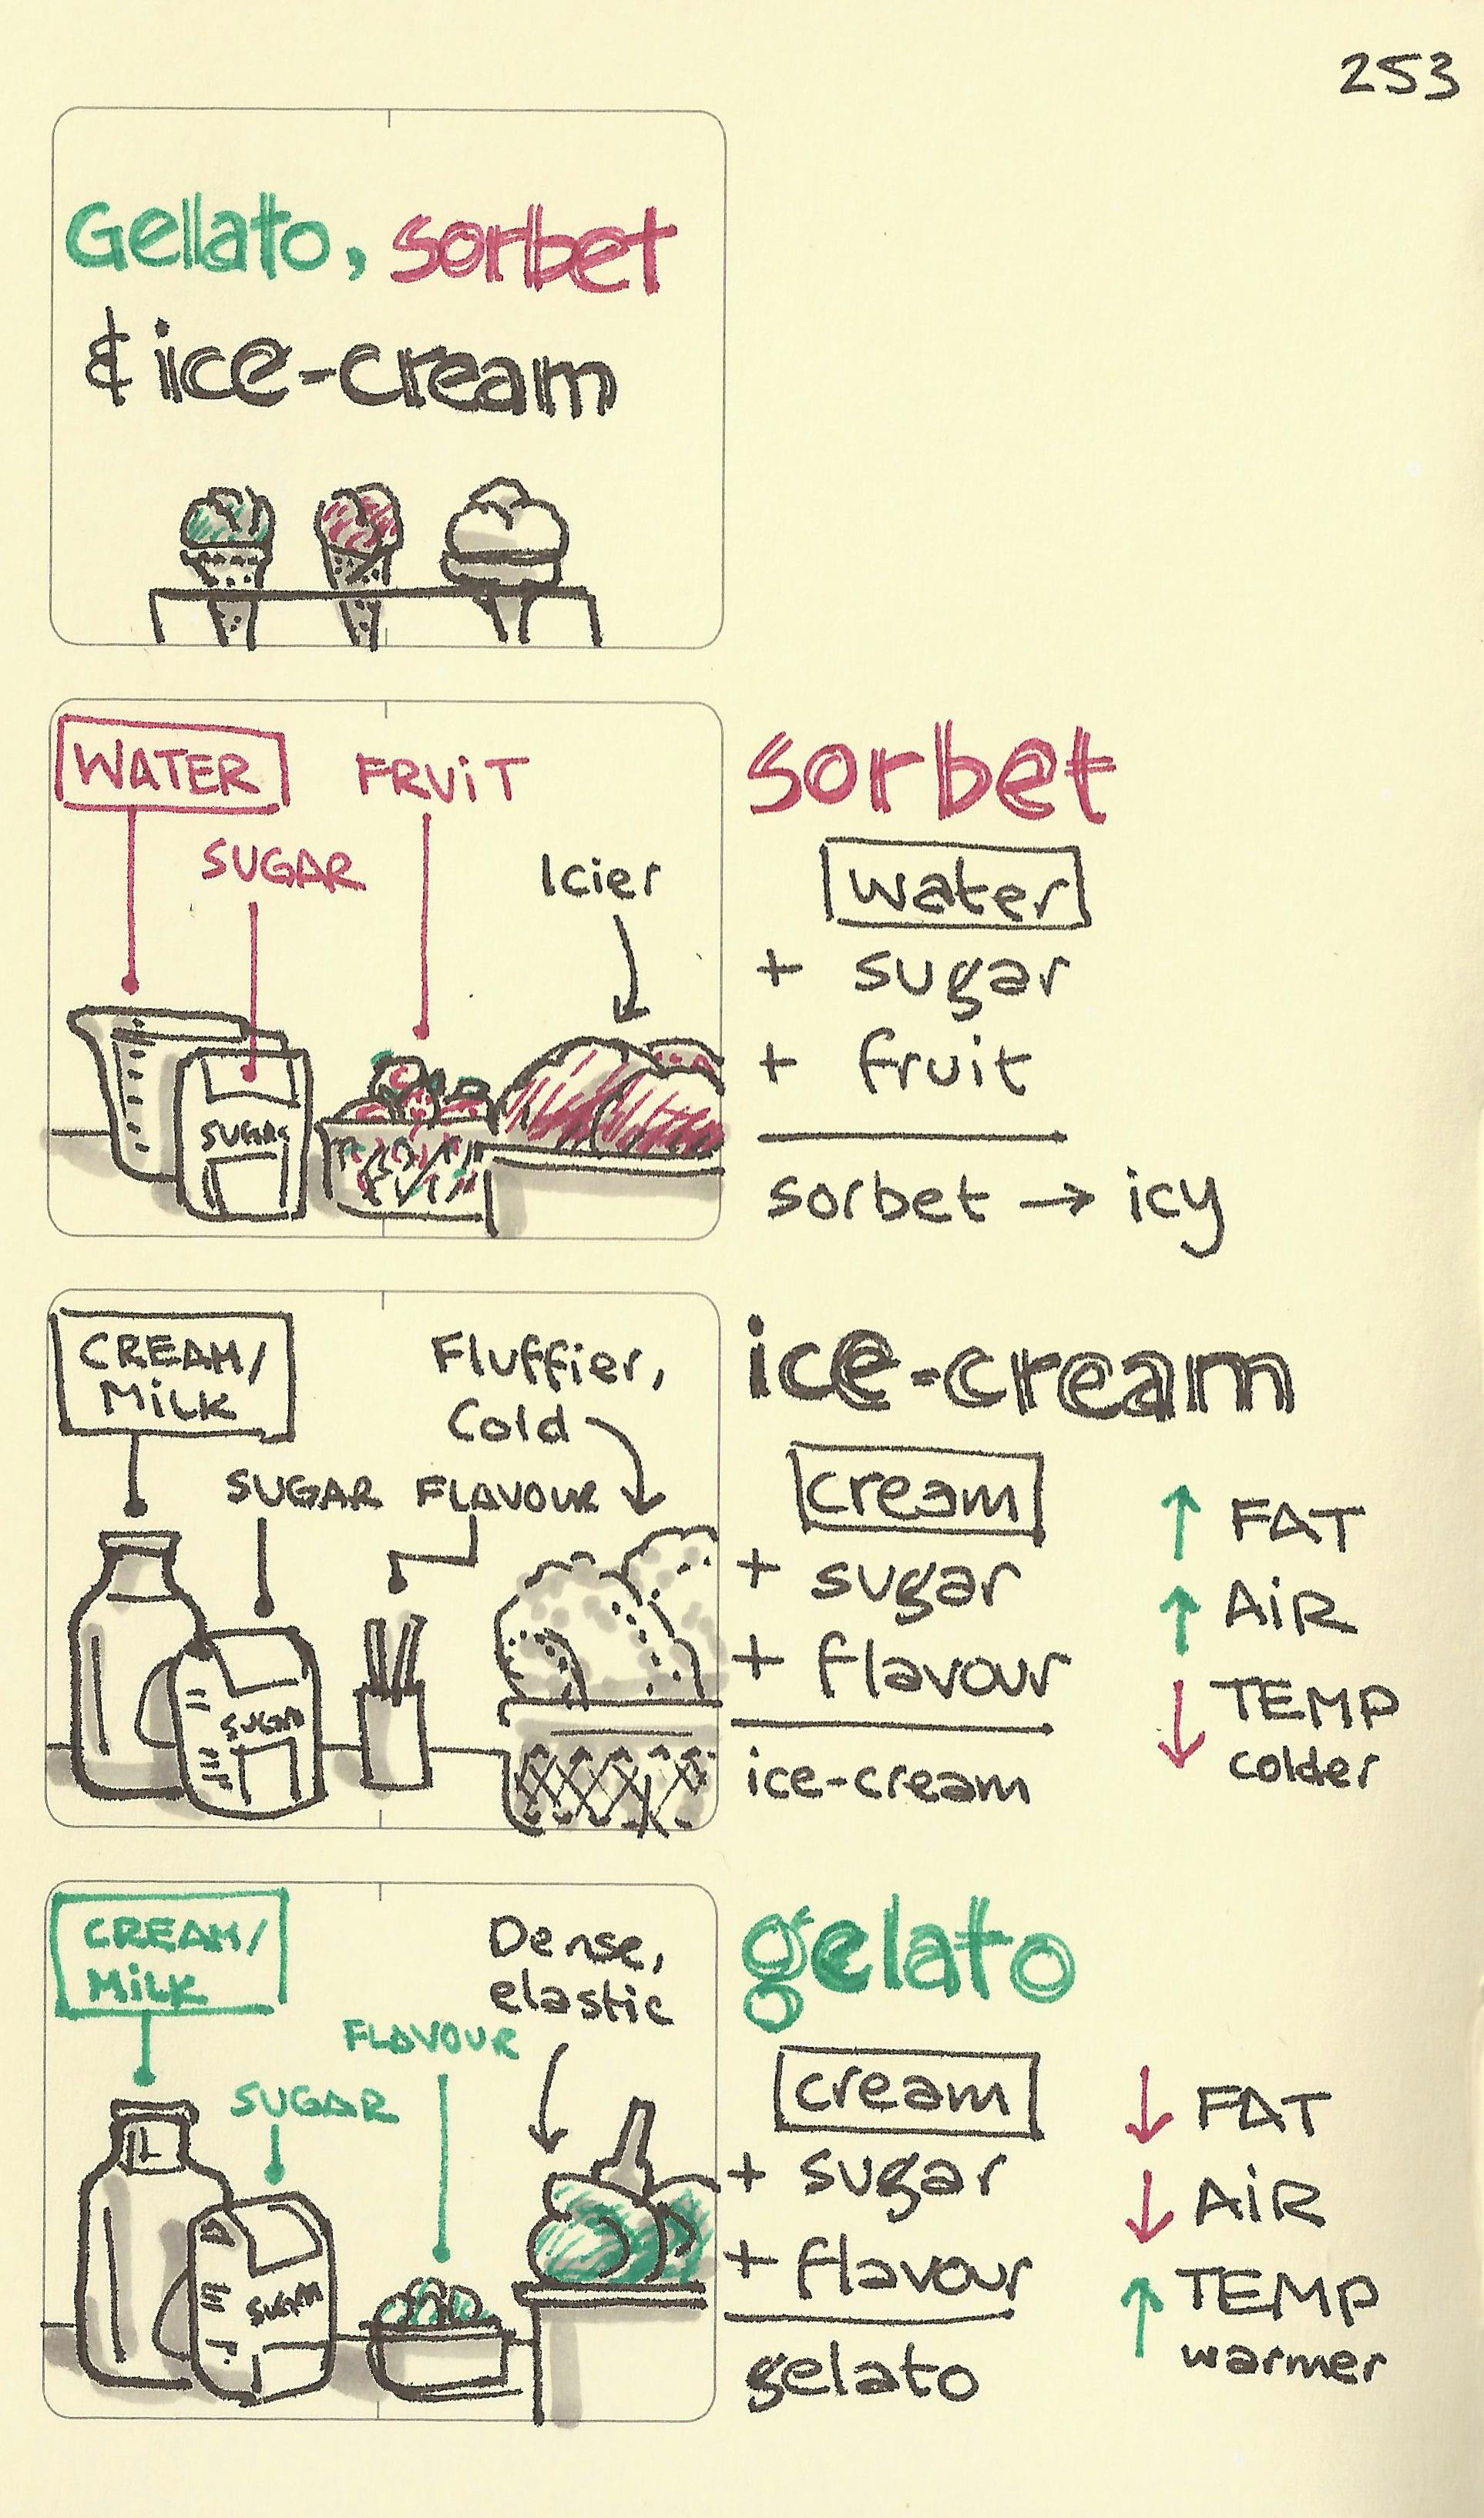 253
Gellato, sorbet
& ice-cream
WATER
FRUiT
SUGAR
Icier
SUGAR
sorbet
water
+ sugar
+ fruit
sorbet → icy
CREAM/
MiLK
Fluffier,
Cold
SUGAR
FLAVOUR
SUGAR
ice-cream
cream
+ sugar
+ flavour
ice-cream
↑ FAT
↑ AiR
↓ TEMP
colder
CREAM/
MiLK
Dense,
elastic
FLAVOUR
SUGAR
SUGAR
gelato
cream
+ sugar
+ flavour
gelato
↓ FAT
↓ AiR
↑ TEMP
warmer